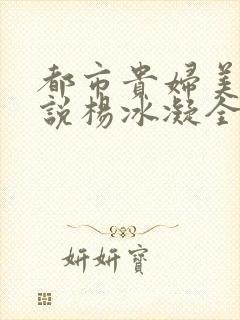 都市貴婦美
説楊冰凝全
妍妍寶